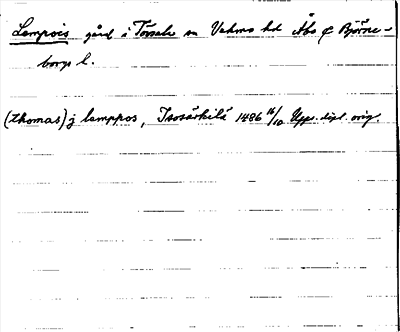 Lempois gård i Törsala sn Vehmo hd Åbo & Björne-
borgs l.
(thomas) j lamppos, Isosärkilä 1486 16/10 Upps. dipl. orig.